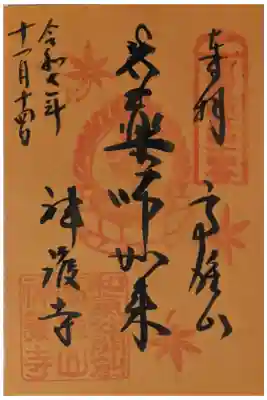 奉拝
高雄山
薬師如来
神護寺
令和七年
十一月十四日